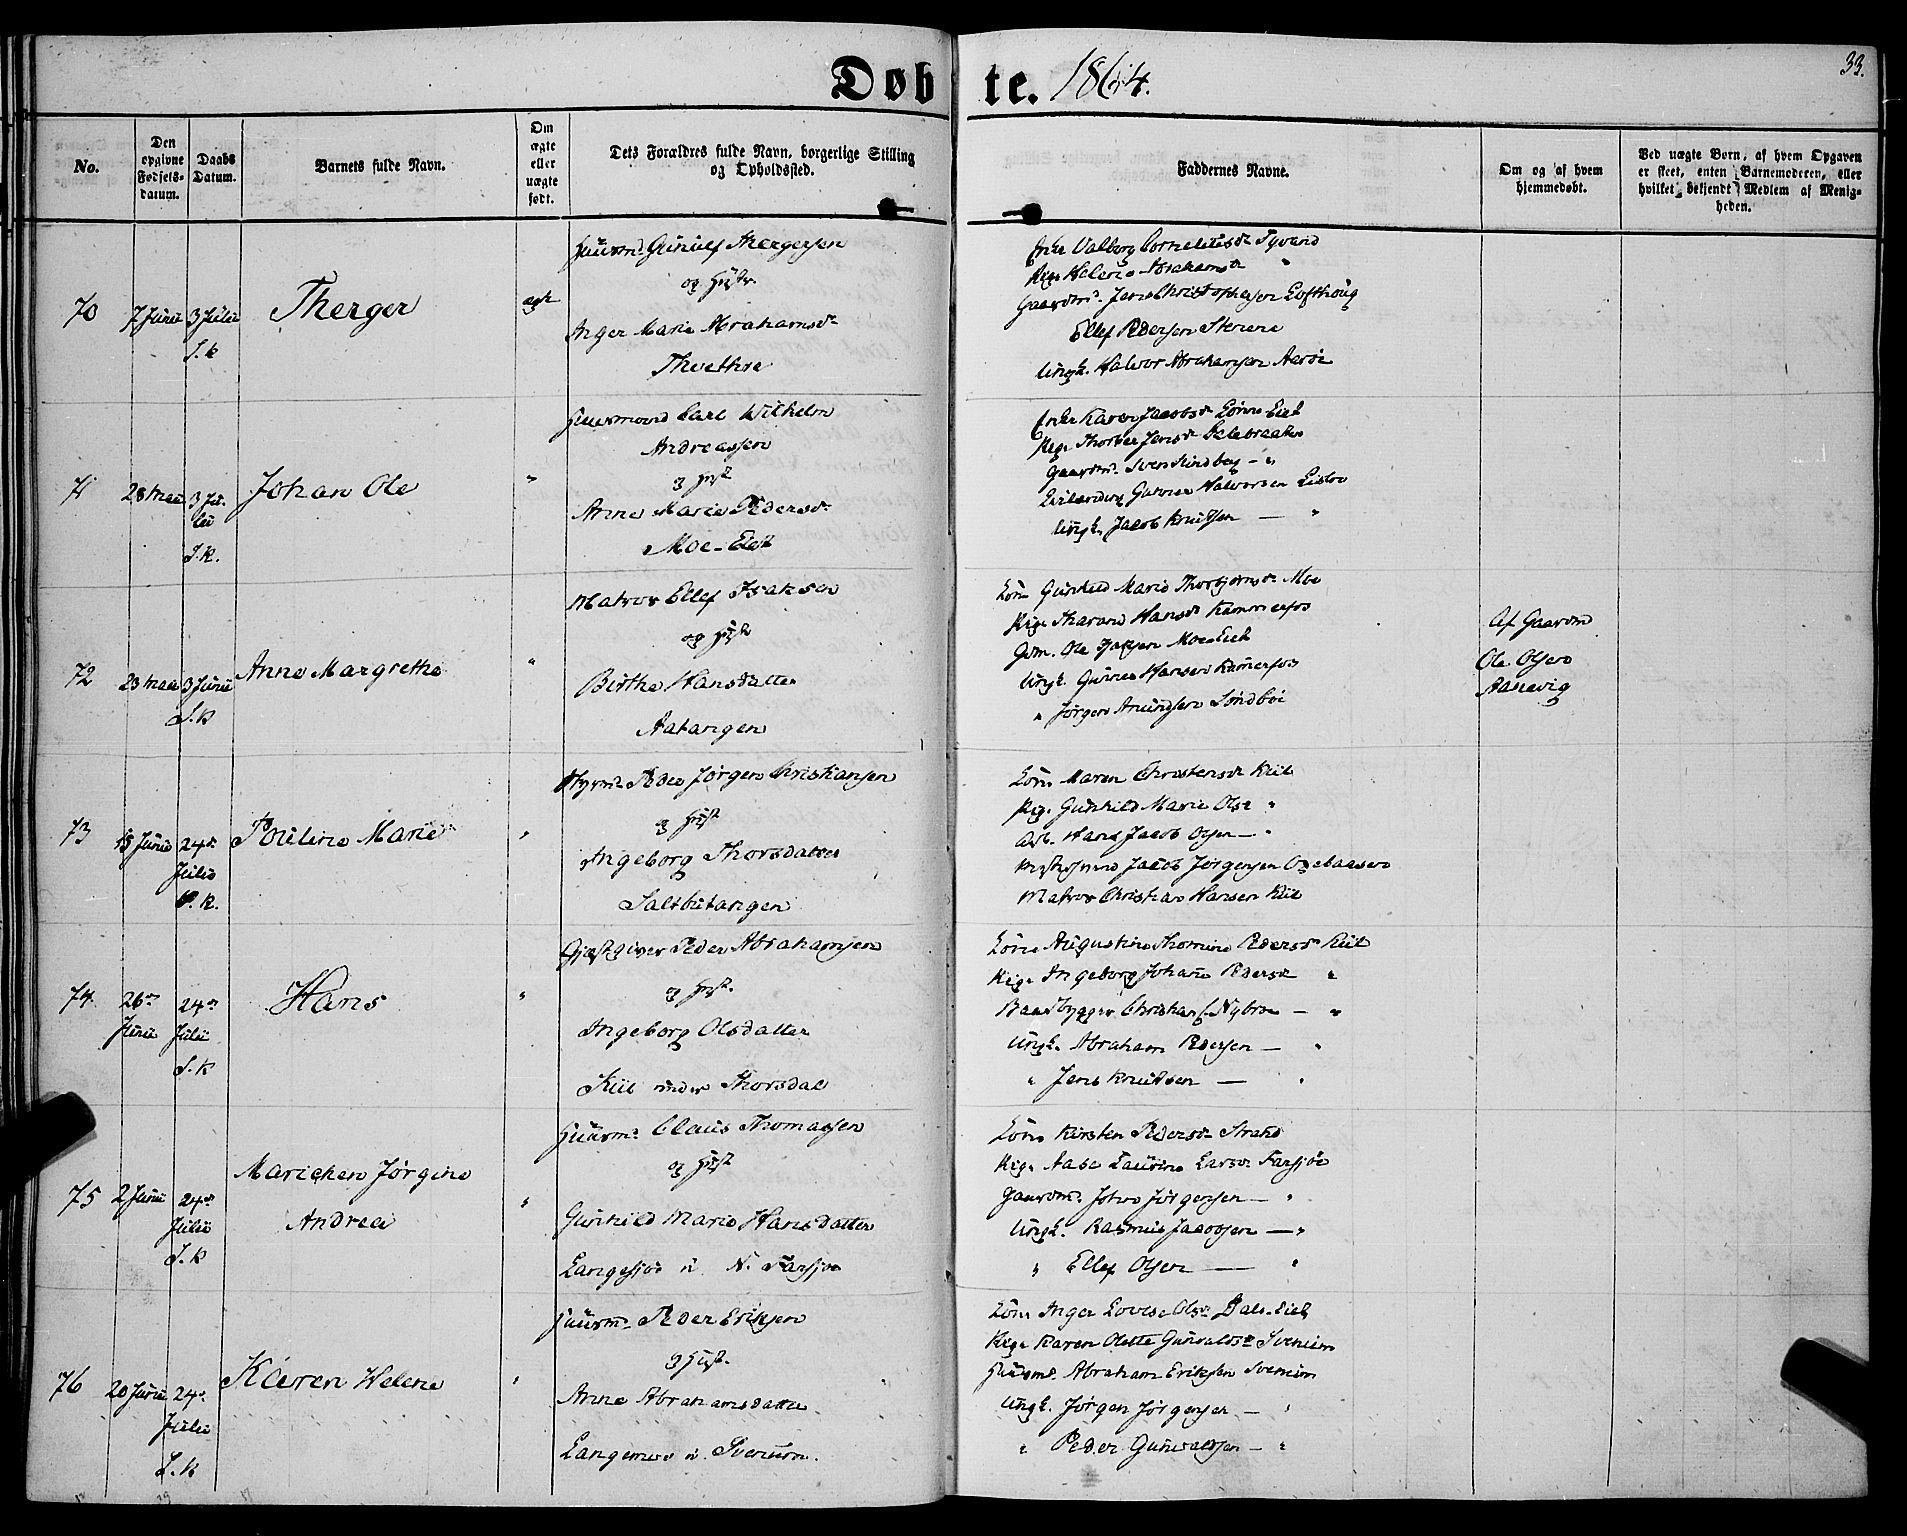 Døbte. 1864.
33.
No.
Den opgivne Fødselsdatum.
Daabs Datum.
Barnets fulde Navn.
Om ægte eller uægte født.
Dets Forældres fulde Navn, borgerlige Stilling og Opholdssted.
Faddernes Navne.
Om og af hvem hjemmedøbt.
Ved uægte Børn, af hvem Opgaven er skeet, enten Barnemoderen, eller hvilket bekjendt Medlem af Menigheden.
70
7 Juni
3 Juli
S.K
Therger
ægte
Huusmd Gunulf Thergersen
og Hustr.
Inger Marie Abrahamsdr
Thvethre
Enke Valborg Corneliusdr Tyvand
Pige Helene Abrahamsdr "
Gaardmd Jens Christophersen Lofthoug
Ellef Pedersen Sterene
Ungk. Halvor Abrahamsen Aarøe
71
28 Mai
3 Juli
S.K.
Johan Ole
"
Huusmand Carl Wilhelm
Andreassen
og Hust
Anne Marie Pedersdr
Moe-Eiet
Enke Karen Jacobsdr
Pige Jensdr
Gaardmd. Sven Lindberg - "
Gunner Halvorsen
Ungk. Jacob Knudsen — "
72
23 Mai
3 Juli
S.K
Anne Margrethe
"
Matros Ellef Isaksen
og Hust
Birthe Hansdatter
Aatangen
Kone Gunhild Marie Thorbjørnsdr Moe
Pige Hansdr Kammerfos
Gdm. Ole Moe-Eiet
Ungk. Gunner Hansen Kammerfos
" Jørgen Amundsen Søndbøe
Af Gaardm
Ole Olsen
Aasevig
73
15 Juni
24de
Juli
S.K.
Pouline Marie
"
Styrmd Peder Jørgen Christiansen
og Hust
Ingeborg Thorsdatter
Saltbutangen
Kone Maren Christensdr Kiil
Pige Gunhild Marie Olsdr "
Arb. Hans Jacob Olsen — "
Jacob Jørgensen
Matros Christian Hansen Kiil
74
26de
Juni
24de
Juli
S.K
Hans
"
Gjæstgiver Peder Abrahamsen
og Hust.
Ingeborg Olsdatter
Kiil under Thorsdal
Kone Augustine Thomine Pedersdr Kiil
Pige Ingeborg Johanne Pedersdr "
Baadbygger Christian Nybroe — "
Ungk. Abraham Pedersen — "
" Jens Knudsen — "
75
2 Juni
24de
Juli
S.K
Marichen Jørgine
Andrea
"
Huusmd Claus Thomassen
og Hust
Gunhild Marie Hansdatter
Langesjøe u. N. Farsjøe
Kone Kirsten Pedersdr Strand
Pige Aase Laurine Larsdr Farsjøe
Gaardmd. John Jørgensen — "
Ungk. Rasmus Jacobsen — "
" Ellef Olsen — "
76
20 Juni
24de
Juli
S.K
Karen Helene
"
Huusmd Peder Eriksen
og Hust.
Anne Abrahamsdatter
Langemyr u. Svenum.
Kone Inger Lovise Olsdr Dals-Eiet
Pige Karen Olette Gunvaldsdr Svenum
Huusmd. Abraham Eriksen Svenum
Ungk. Jørgen Jørgensen — "
" Peder Gunvaldsen — "